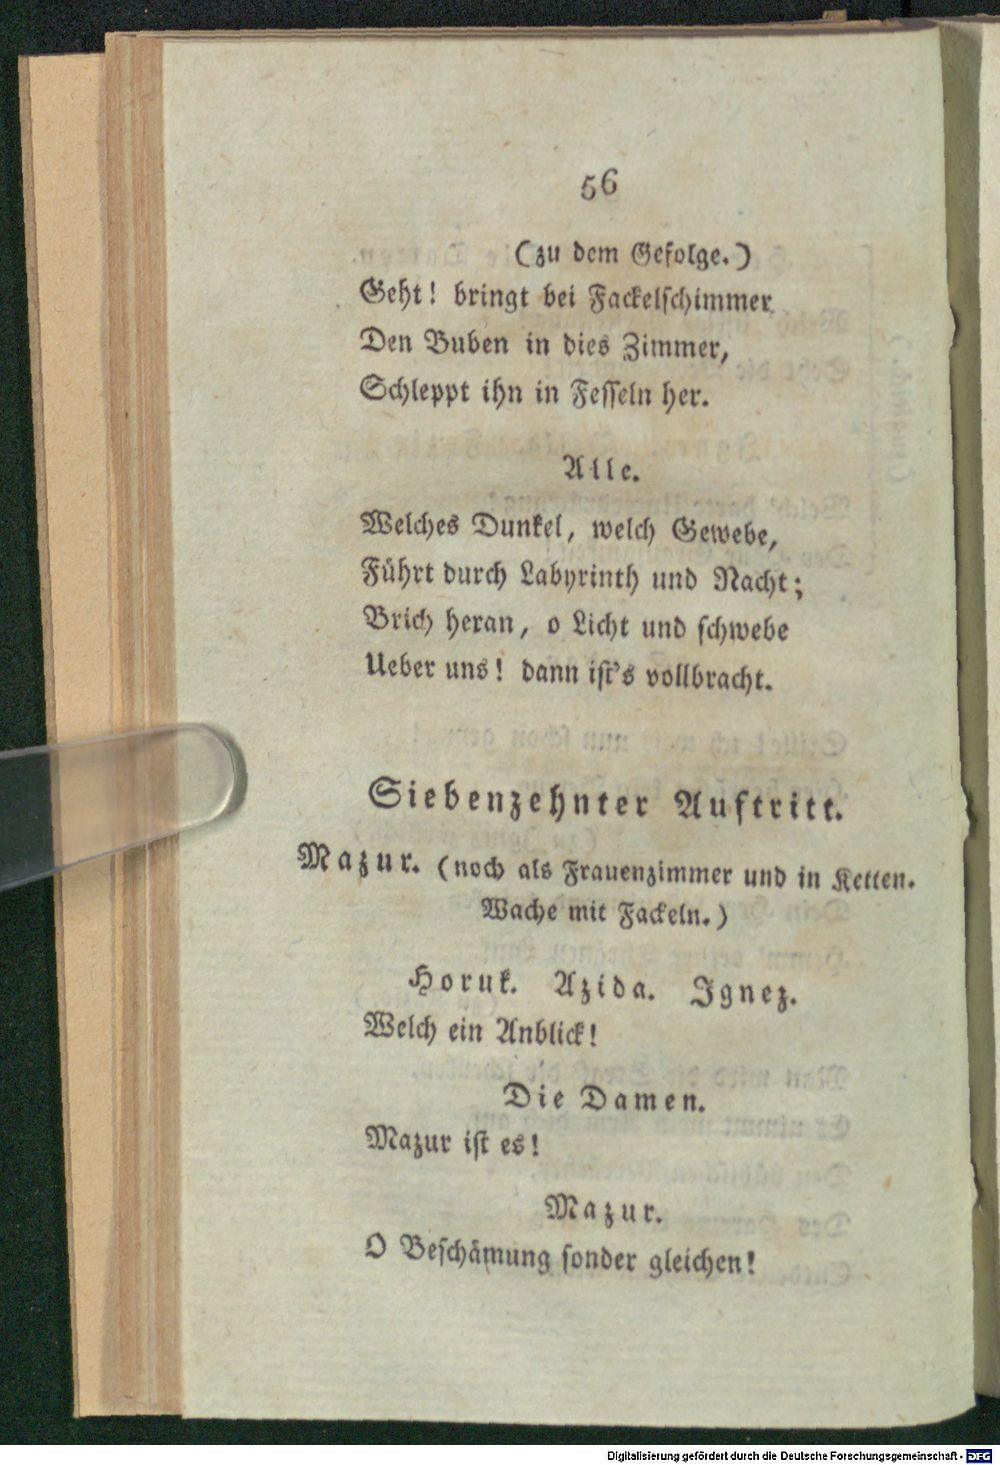 56
(zu dem Gefolge.)
Geht! bringt bei Fackelschimmer
Den Buben in dies Zimmer,
Schleppt ihn in Fesseln her.
Alle.
Welches Dunkel, welch Gewebe,
Führt durch Labyrinth und Nacht;
Brich heran, o Licht und schwebe
Ueber uns! dann ist's vollbracht.
Siebenzehnter Auftritt.
Mazur. (noch als Frauenzimmer und in Ketten.
Wache mit Fackeln.)
Horuk. Azida. Ignez.
Welch ein Anblick!
Die Damen.
Mazur ist es!
Mazur.
O Beschämung sonder gleichen!
Digitalisierung gefördert durch die Deutsche Forschungsgemeinschaft - DFG